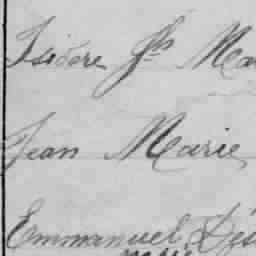 Isidore Jh Ma
Jean Marie
Emmanuel Dés